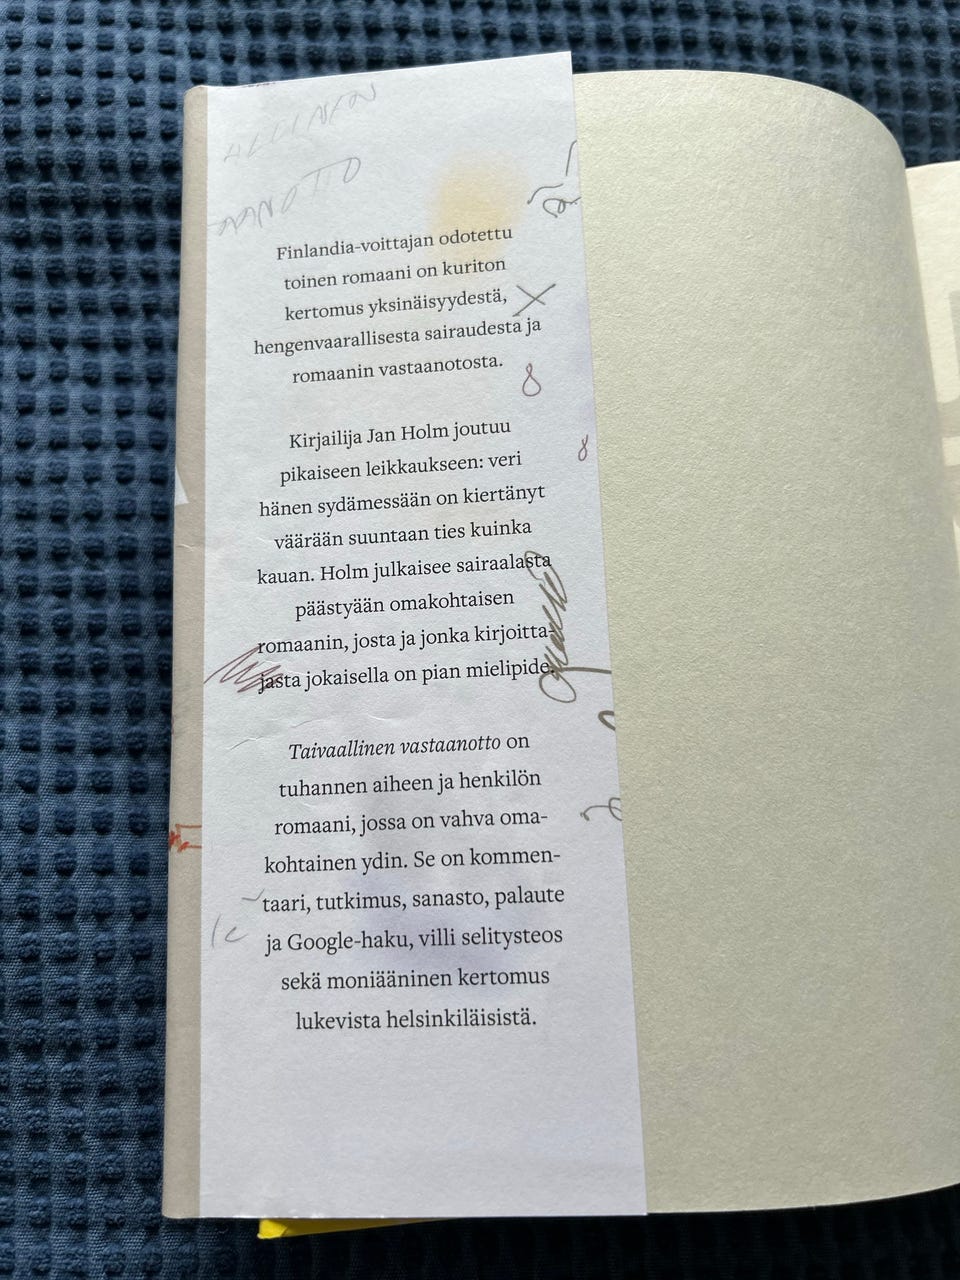 Finlandia-voittajan odotettu
toinen romaani on kuriton
kertomus yksinäisyydestä,
hengenvaarallisesta sairaudesta ja
romaanin vastaanotosta.
Kirjailija Jan Holm joutuu
pikaiseen leikkaukseen: veri
hänen sydämessään on kiertänyt
väärään suuntaan ties kuinka
kauan. Holm julkaisee sairaalasta
päästyään omakohtaisen
romaanin, josta ja jonka kirjoitta-
jasta jokaisella on pian mielipide.
Taivaallinen vastaanotto on
tuhannen aiheen ja henkilön
romaani, jossa on vahva oma-
kohtainen ydin. Se on kommen-
taari, tutkimus, sanasto, palaute
ja Google-haku, villi selitysteos
sekä moniääninen kertomus
lukevista helsinkiläisistä.